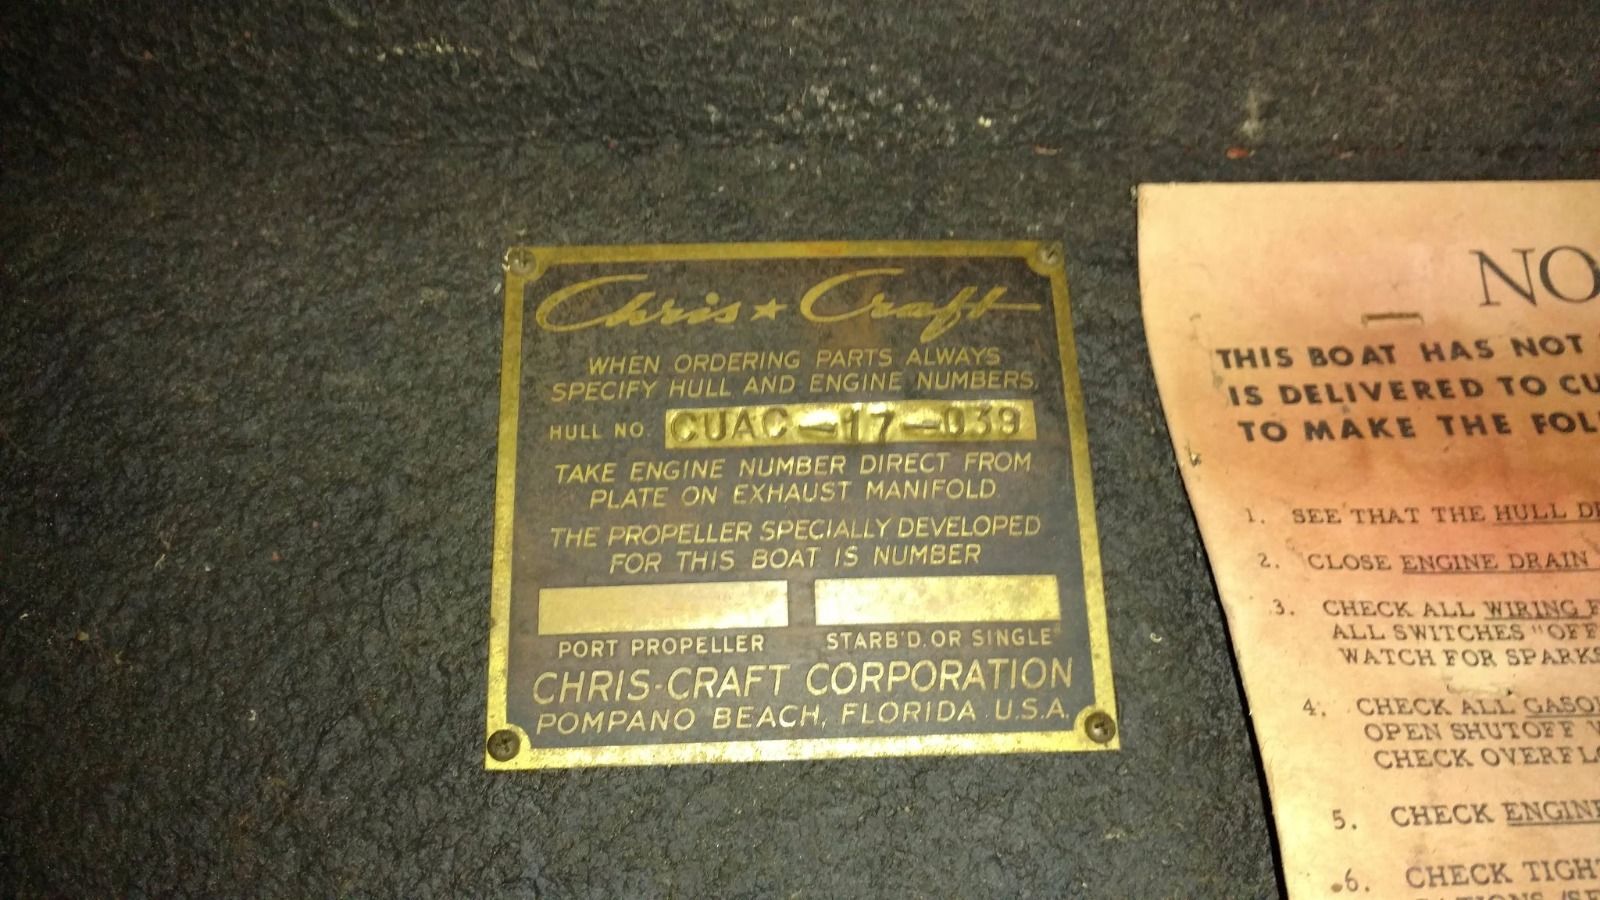 Chris★Craft
WHEN ORDERING PARTS ALWAYS
SPECIFY HULL AND ENGINE NUMBERS.
HULL NO. CUAC-17-039
TAKE ENGINE NUMBER DIRECT FROM
PLATE ON EXHAUST MANIFOLD
THE PROPELLER SPECIALLY DEVELOPED
FOR THIS BOAT IS NUMBER
PORT PROPELLER STARB'D. OR SINGLE
CHRIS-CRAFT CORPORATION
POMPANO BEACH, FLORIDA U.S.A.
NO
THIS BOAT HAS NOT
IS DELIVERED TO CU
TO MAKE THE FOL
1. SEE THAT THE HULL D
2. CLOSE ENGINE DRAIN
3. CHECK ALL WIRING F
ALL SWITCHES "OFF
WATCH FOR SPARKS
4. CHECK ALL GASO
OPEN SHUTOFF
CHECK OVERFL
5. CHECK ENGINE
6. CHECK TIGHT